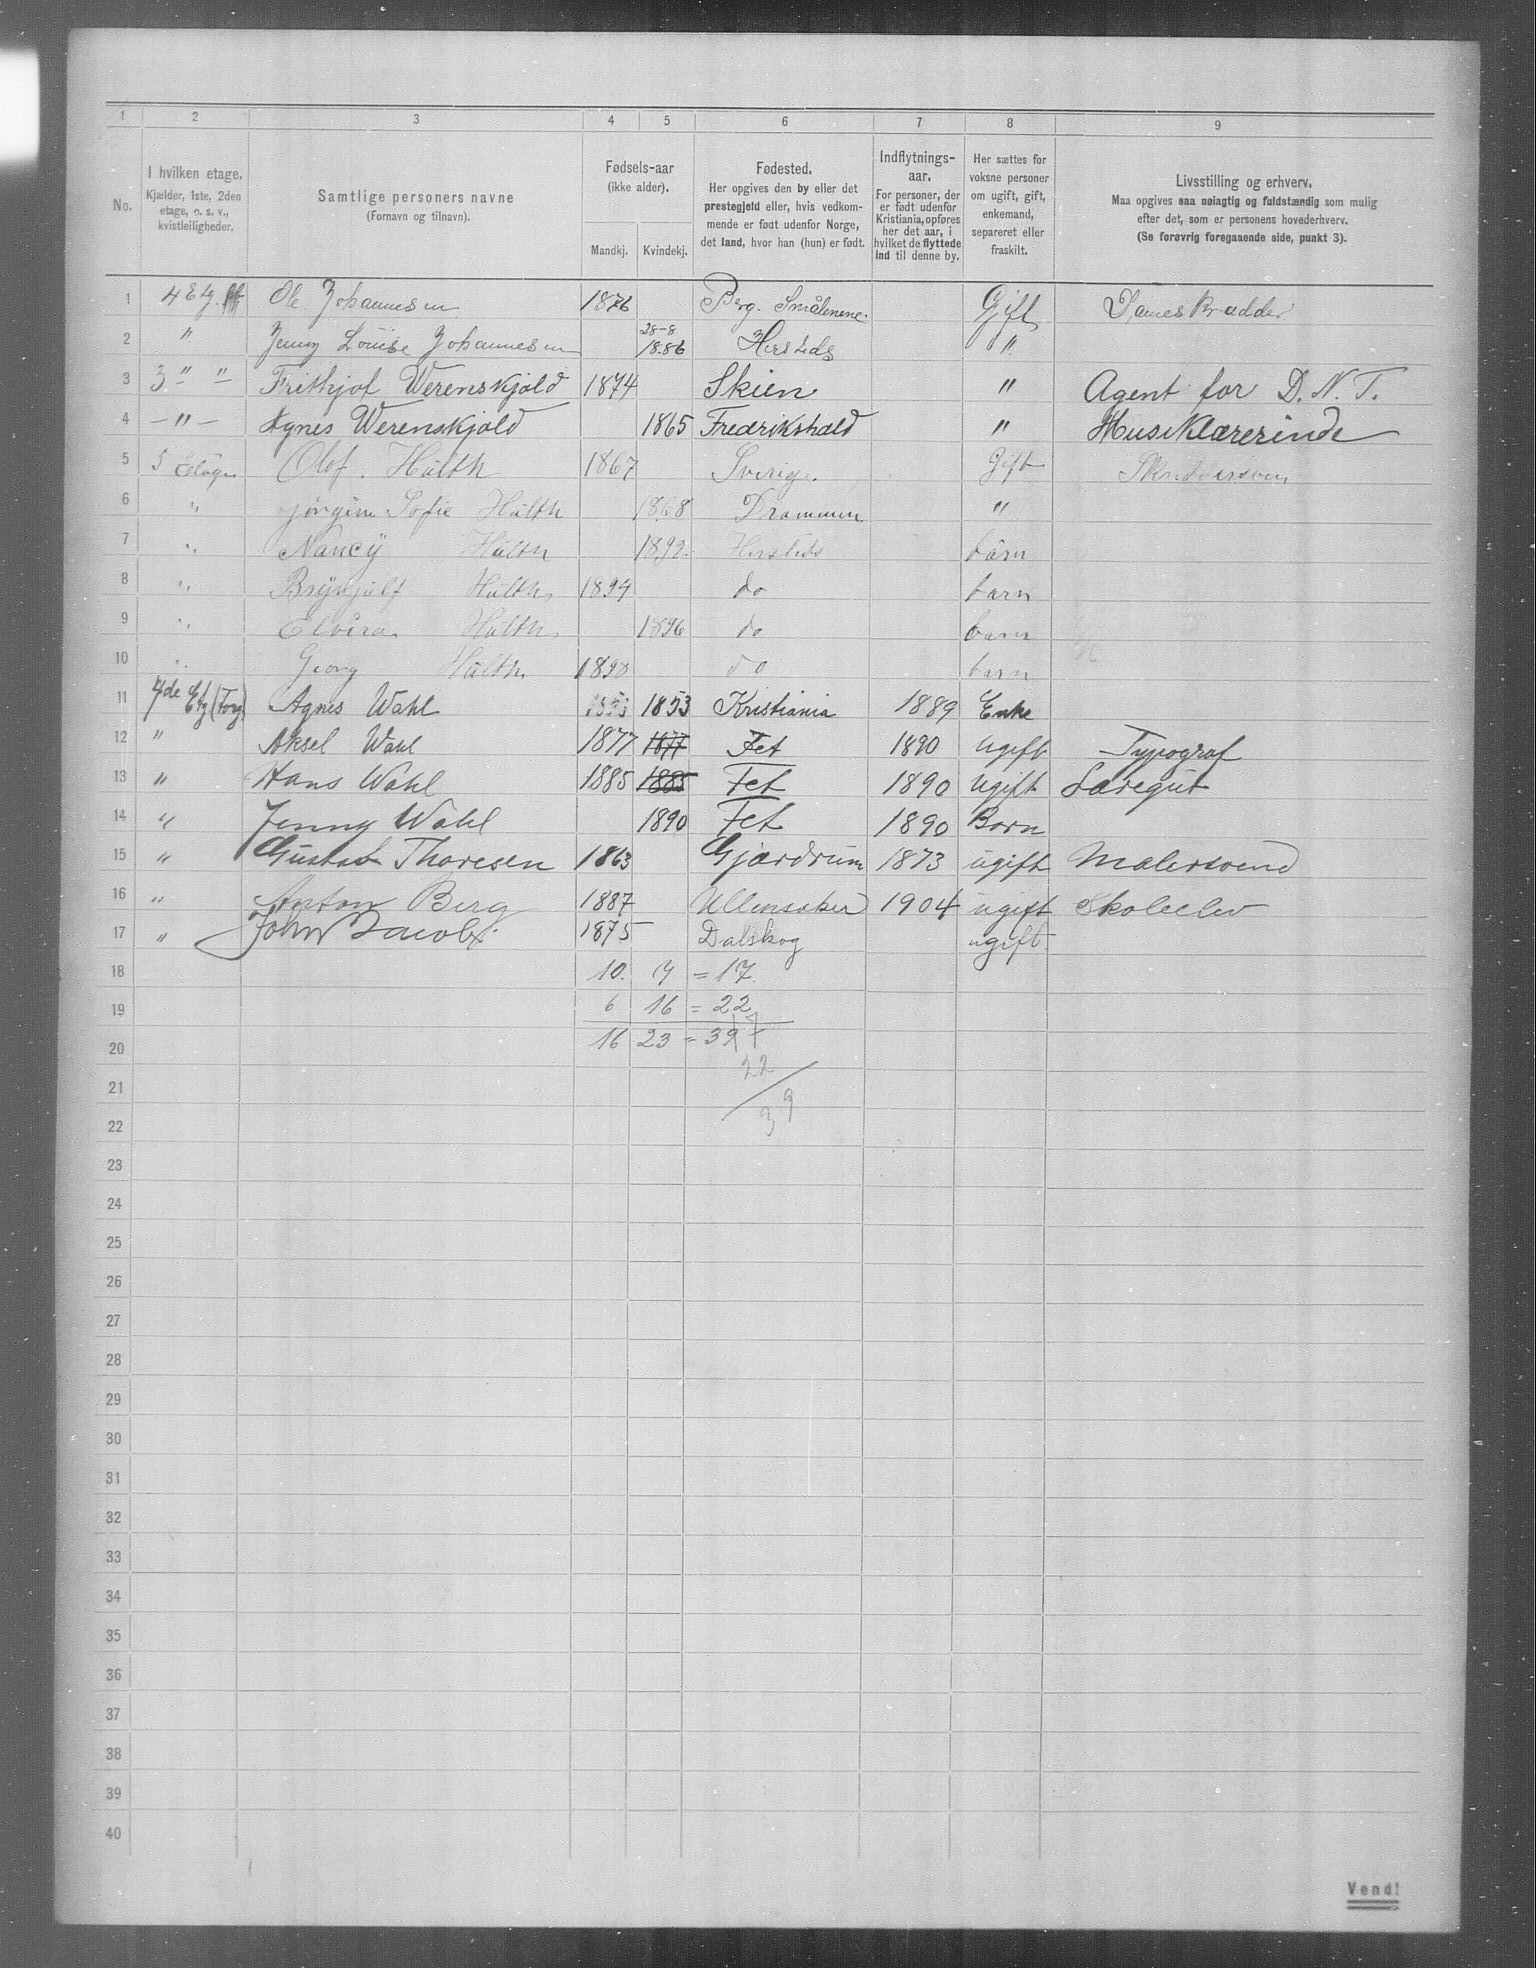 1 2 3 4 5 6 7 8 9
No.
I hvilken etage.
Kjælder, 1ste, 2den
etage, o. s. v.,
kvistleiligheder.
Samtlige personers navne
(Fornavn og tilnavn).
Fødsels-aar
(ikke alder).
Mandkj. Kvindekj.
Fødested.
Her opgives den by eller det
prestegjeld eller, hvis vedkom-
mende er født udenfor Norge,
det land, hvor han (hun) er født.
Indflytnings-
aar.
For personer, der
er født udenfor
Kristiania, opføres
her det aar, i
hvilket de flyttede
ind til denne by.
Her sættes for
voksne personer
om ugift, gift,
enkemand,
separeret eller
fraskilt.
Livsstilling og erhverv.
Maa opgives saa nøiagtig og fuldstændig som mulig
efter det, som er personens hovederhverv.
(Se forøvrig foregaaende side, punkt 3).
1 4 Etg. Ole Johannesen 1876 Berg. Smålenene. Gift
2 " Jenny Louise Johannesen 28-8 1886 Hersteds "
3 3 " " Frithjof Werenskjold 1874 Skien " Agent for D. N. T.
4 - " - Agnes Werenskjold 1865 Fredrikshald " Musiklærerinde
5 Etage Olof. Hülth 1867 Sverig. Gift
6 " Jørgine Sofie Hülth 1868 Drammen "
7 " Nancy Hülth 1892. Hersteds barn
8 " Brynjulf Hülth 1894 do barn
9 " Elvira Hülth 1896 do barn
10 " Georg Hülth do barn
11 4de Etg (Torg) Agnes Wahl 1853 1853 Kristiania 1889 Enke
12 " Aksel Wahl 1877 1877 Fet 1890 ugift Typograf
13 " Hans Wahl 1885 1885 Fet 1890 ugift Læregut
14 " Jenny Wahl 1890 Fet 1890 Born
15 " Gustav Thoresen 1863 Gjærdrum 1873 ugift Malersvend
16 " Anton Berg 1887 Ullensaker 1904 ugift Skoleelev
17 " John Jacob 1875 Dalskog ugift.
18 10. 7 = 17.
19 6 16 = 22
20 16 23 = 39 17
21 22
22 39
23
24
25
26
27
28
29
30
31
32
33
34
35
36
37
38
39
40
Vend!